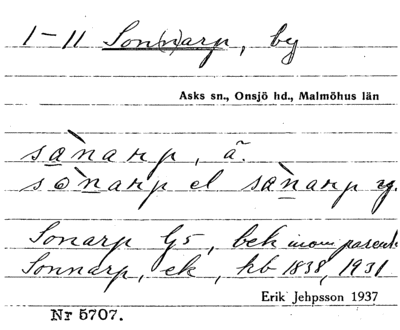 1-11 Son(n)arp, by
Asks sn., Onsjö hd., Malmöhus län
sànarp, ã.
sònarp el sànarp yg.
Sonarp G5, bek inom parent.
Sonnarp, ek, kb 1838, 1931
Erik Jehpsson 1937
Nr 5707.